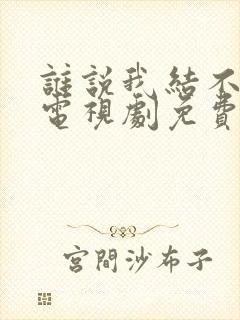 誰說我結不
電視劇免費
宮間沙布子